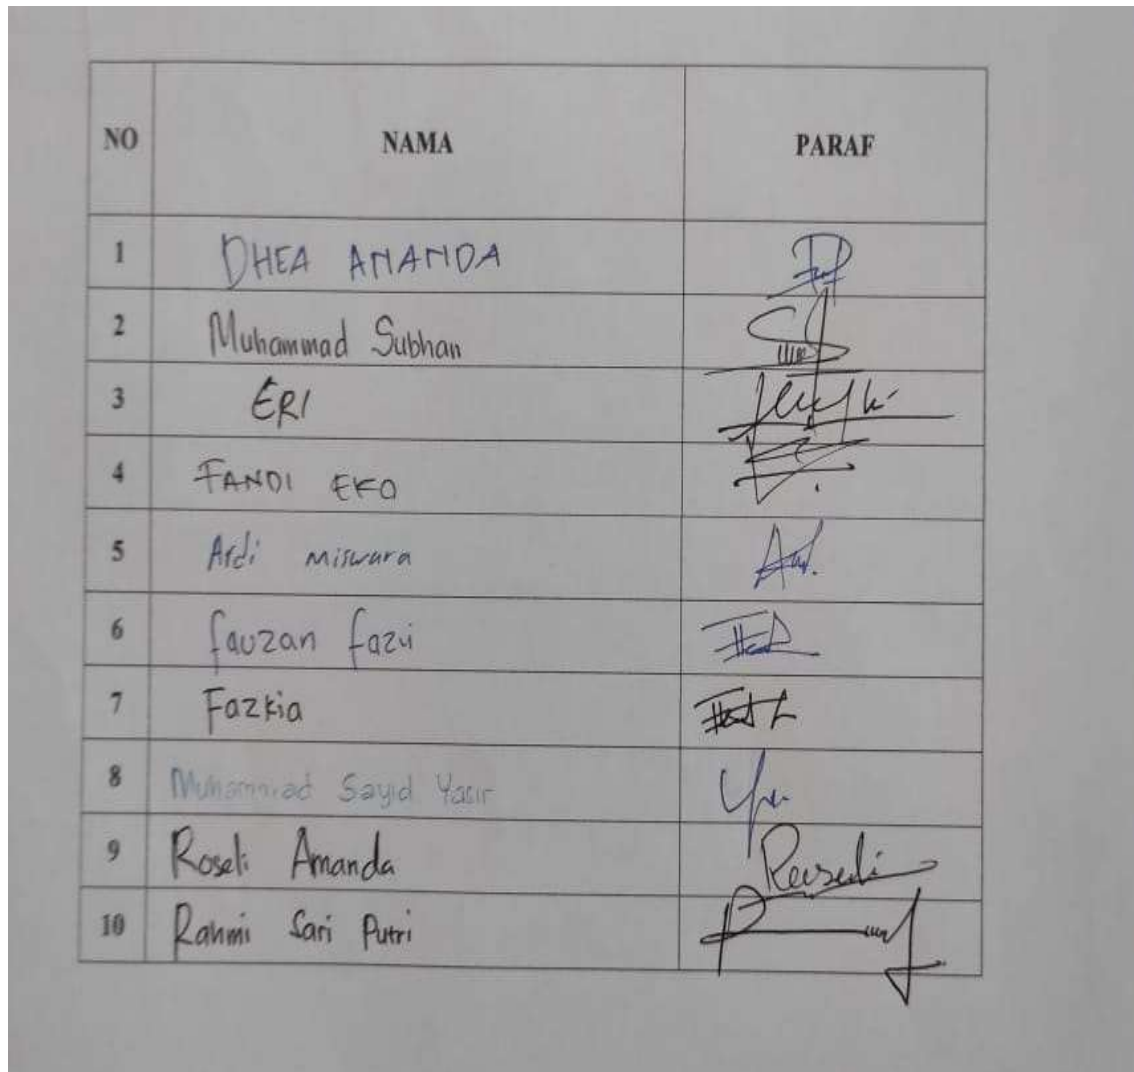 NO NAMA PARAF
1 DHEA ANANDA
2 Muhammad Subhan
3 ERI
4 FANDI EKO
5 Ardi miswara
6 fauzan fazri
7 Fazkia
8 Muhammad Sayid Yasir
9 Roseli Amanda
10 Rahmi Sari Putri